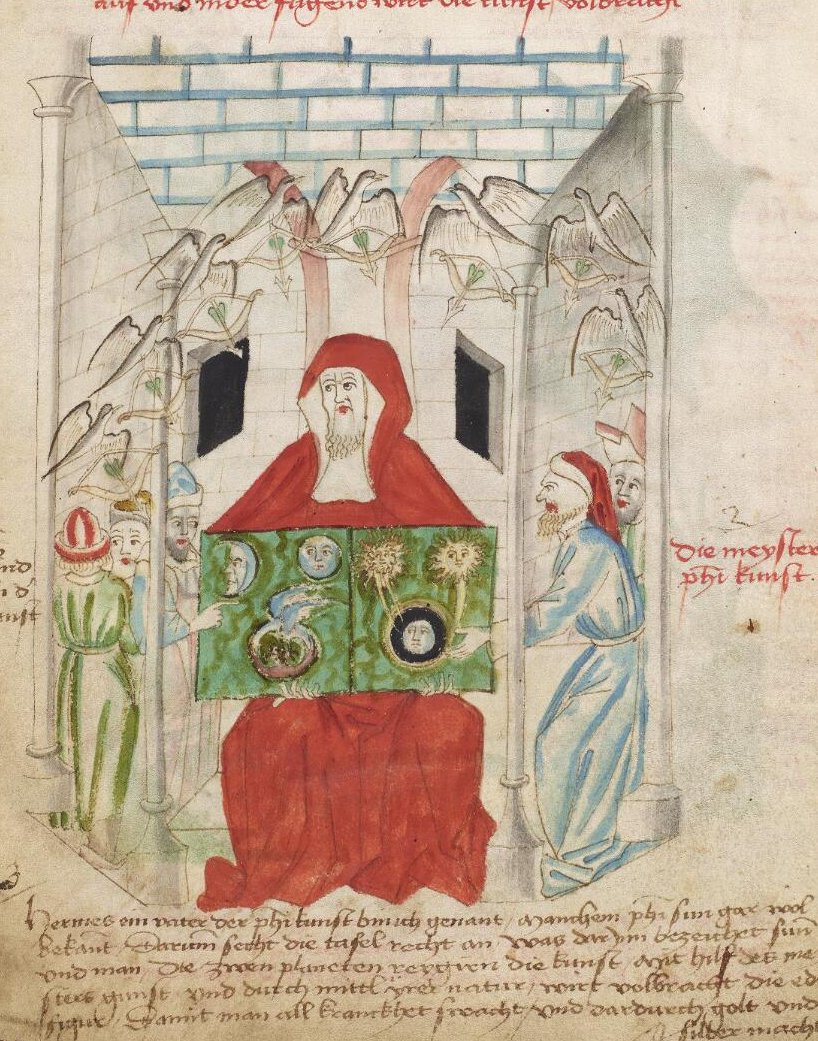 auf vnd in der fugend wirt die kunst volbracht
die meyster
phi kunst.
nd
d
nst
Hermes ein vater der phi kunst bin ich genant / Manchem phi sun gar wol
bekant / Darum secht die tafel recht an / was dar Inn bezeichet
vnd man / Die zwen planeten regiren die kunst / mit hilf des me
sters gunst / vnd durch mittl yrer natur / wirt volbracht die ed
figur / Damit man all kranckhet swacht / vnd dardurch golt vnd
silber macht